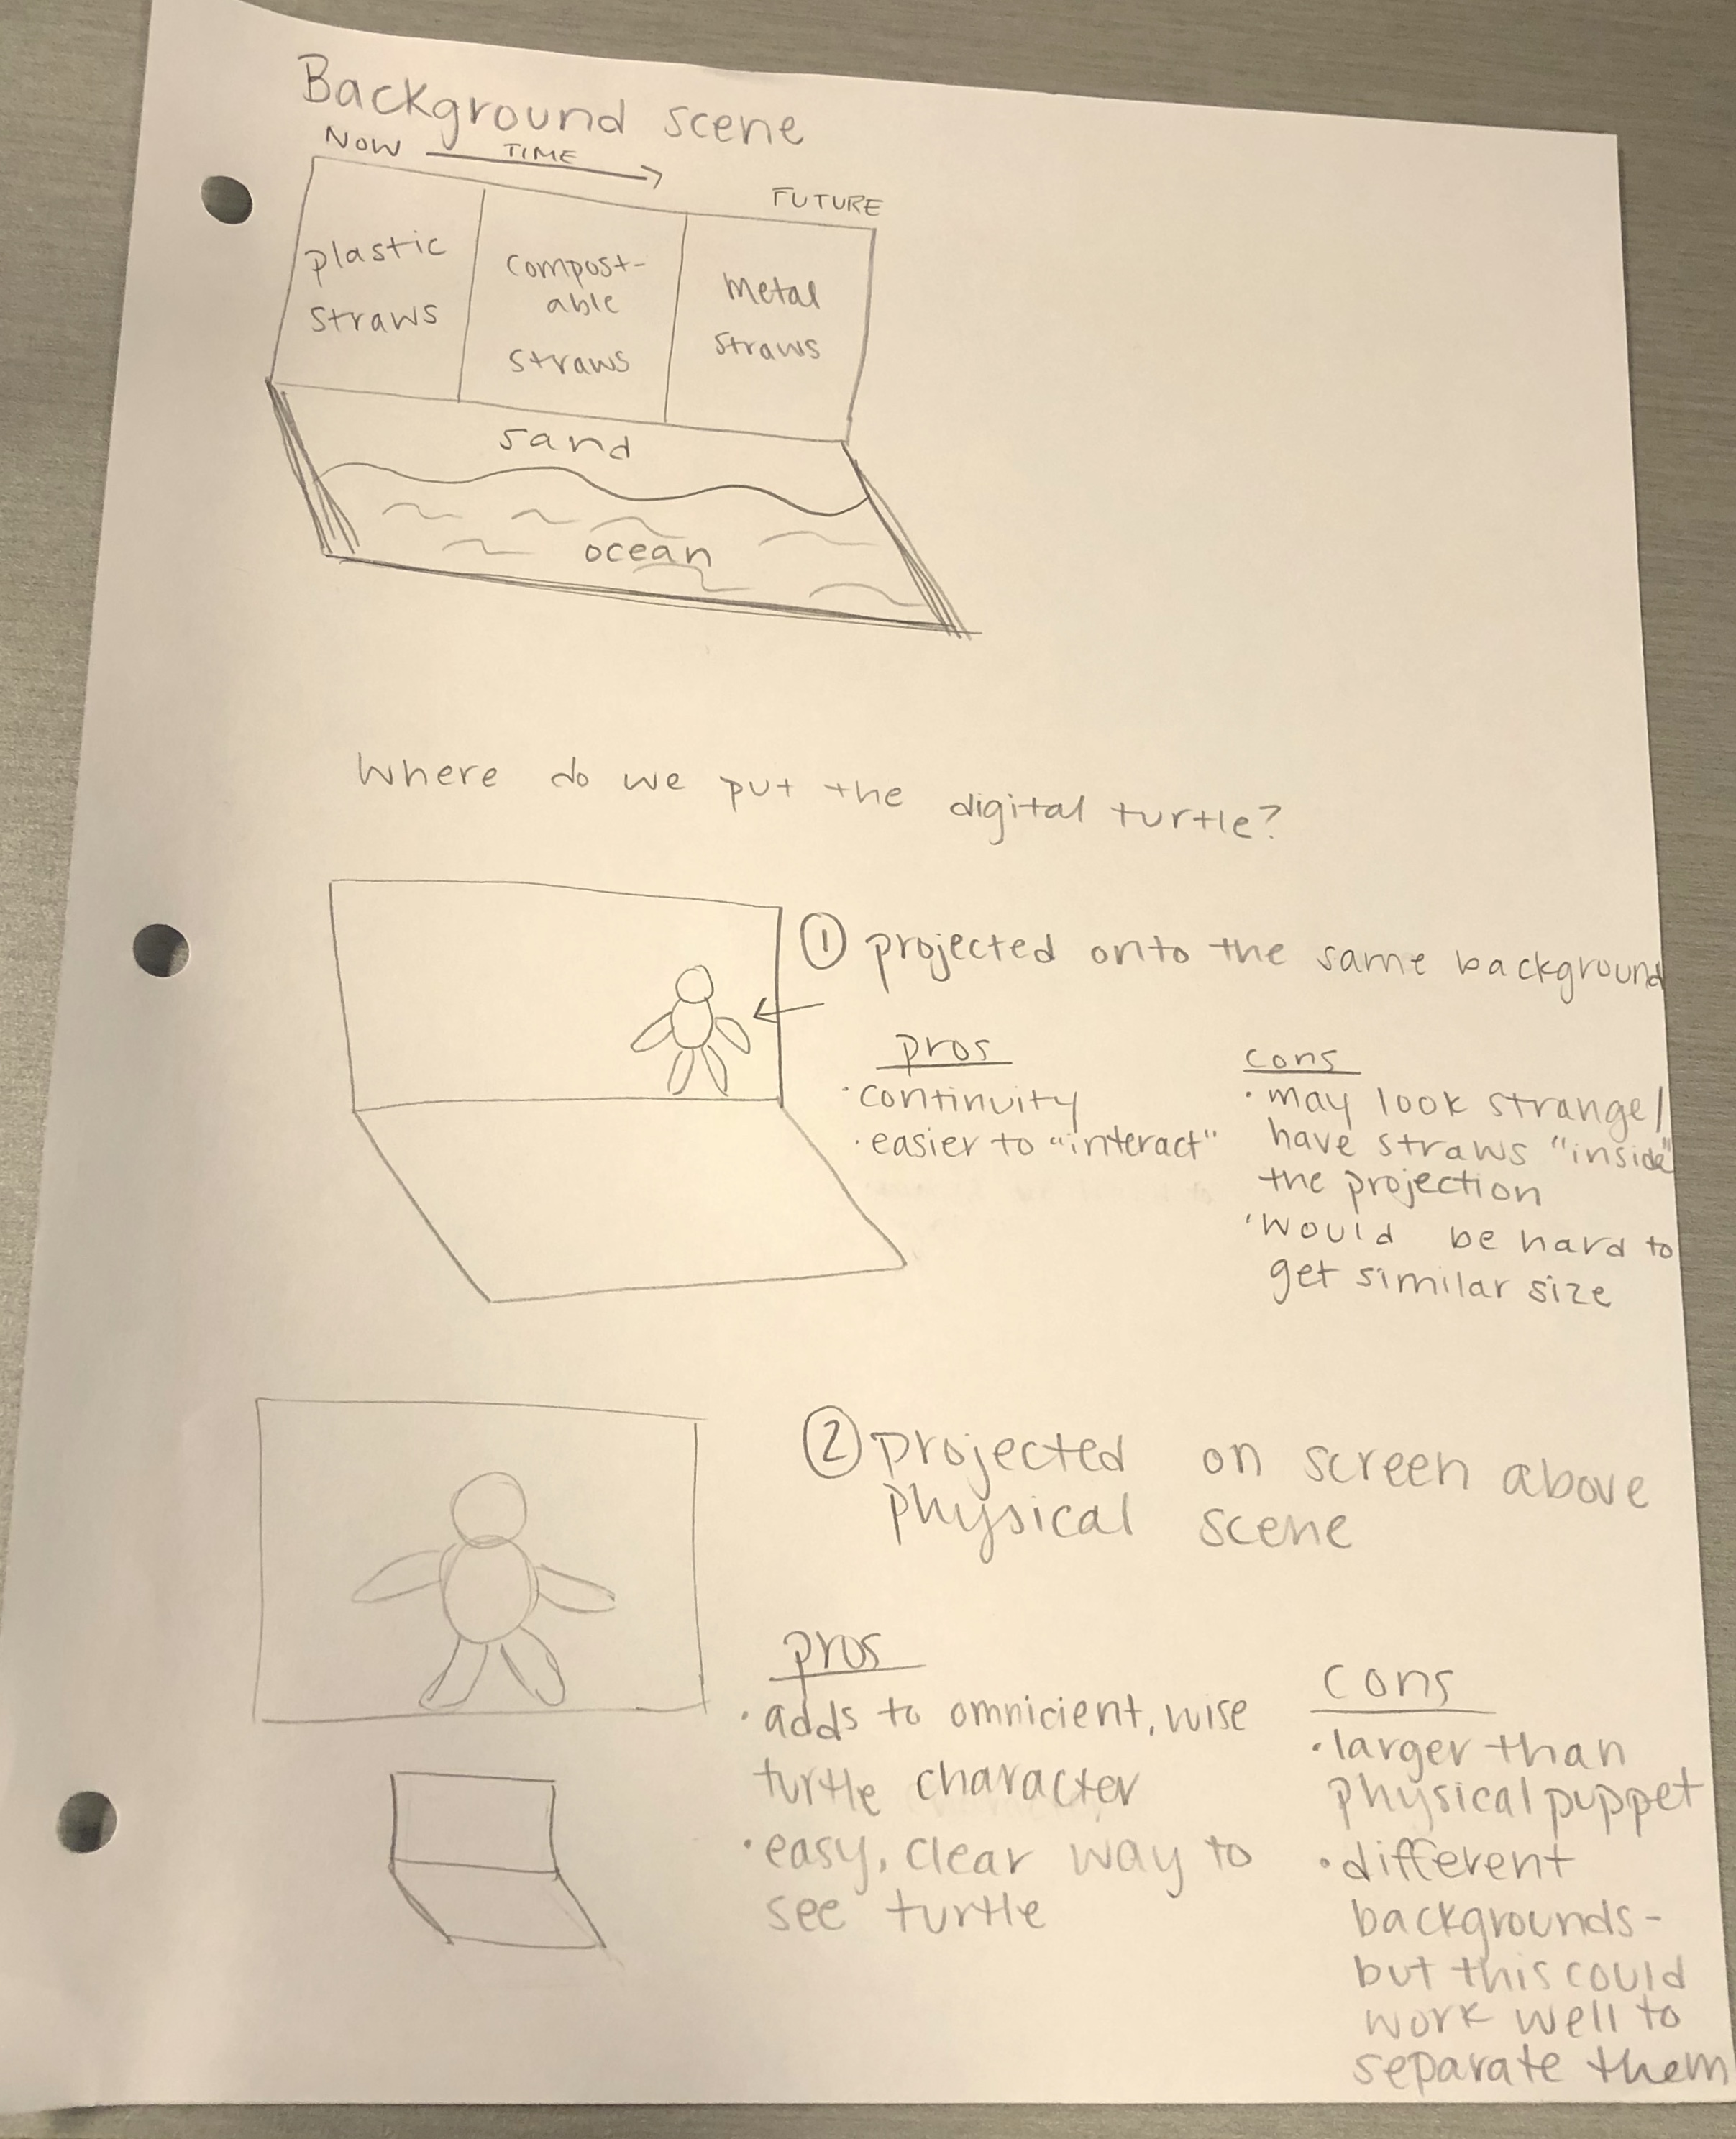 Background scene
NOW TIME
FUTURE
plastic
straws
compost-
able
straws
metal
straws
sand
ocean
Where do we put the digital turtle?
① projected onto the same background
pros
· continuity
· easier to "interact"
cons
· may look strange/
have straws "inside"
the projection
· would be hard to
get similar size
② projected on screen above
physical scene
pros
· adds to omnicient, wise
turtle character
· easy, clear way to
see turtle
cons
· larger than
physical puppet
· different
backgrounds-
but this could
work well to
separate them